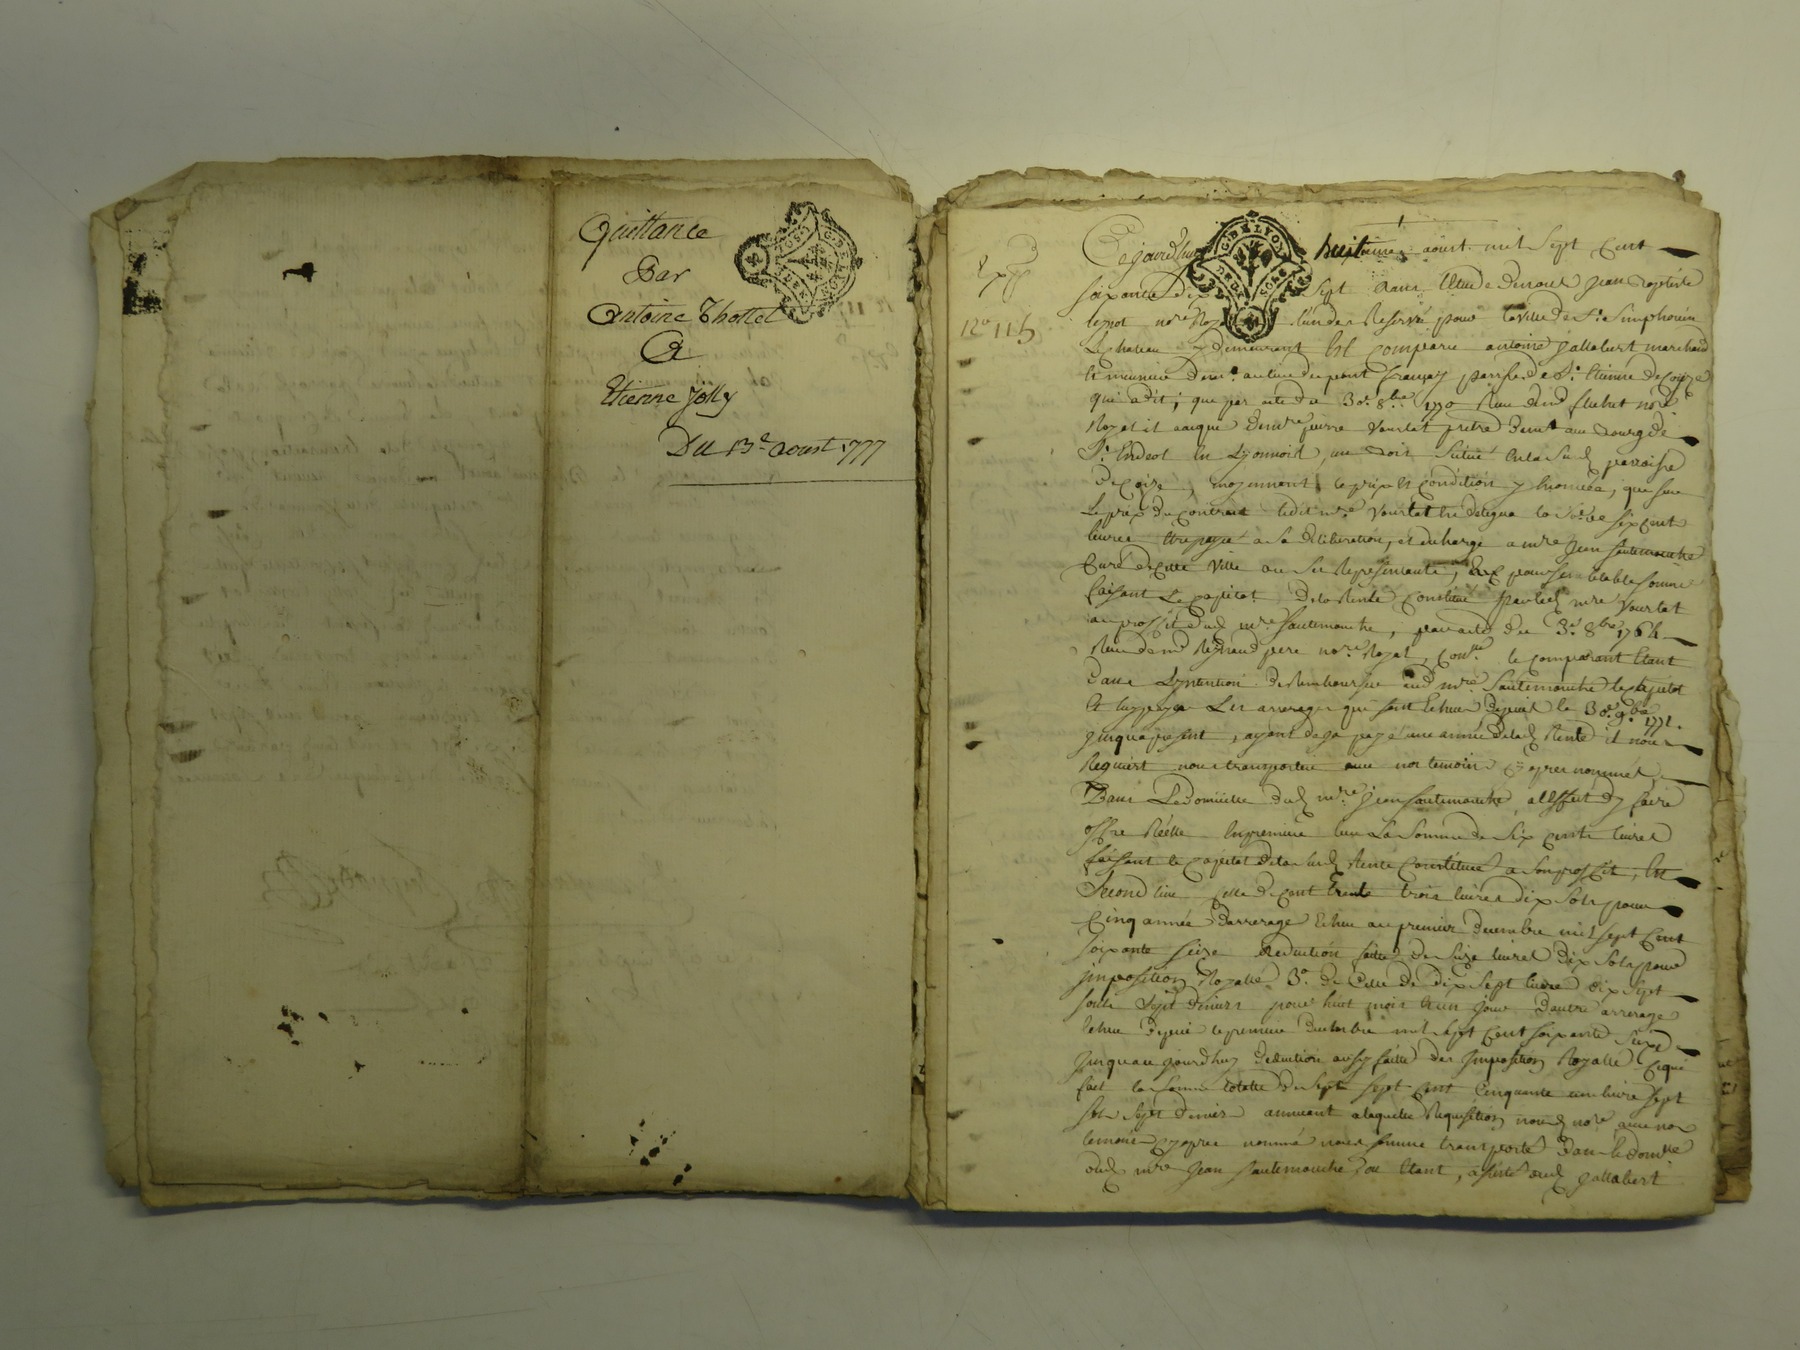 Quittance
Par
Antoine Thollet
A
Etienne Jolly
Du 13e aoust 1777
Cejourdhuy huitieme aoust mil sept cent
soixante dix sept dans l'Etude denous jean Baptiste
nore Royal l'un des Reservé pour la ville de St. Simphorien
Le chateau y demeurant Est comparu antoine gallabert marchand
et meunier demt. au lieu du pont françay parsse de St. Etienne de Coize
qui a dit; que par acte du 30. 8bre 1770 Recu dud fluhet nore
Royal il acquis de mre pierre vourlat pretre demt au Bourg de
St. Endeol en Lyonnois, un Bois situé enla sud parroisse
De Coize, moyennant le prix et condition y Enoncée, que sur
Le prix du contrat ledit mre. vourlat lui delegua la so.e de six cent
livres Etre payé a sa deliberation, et decharge a mre jean Sautemouche
Curé de cette ville ou ses Representants, pour semblable somme
faisant Le capital dela Rente Constitué par led mre vourlat
au proffit dud mre Sautemouche, par acte du 3e 8bre 1764
Recu de md Reynaud pere nore Royal, le comparant Etant
dans L'intention de Rembourser aud mre. Sautemouche le capital
Et luy payer Les arrerages qui sont Echus depuis le 30e. 9bre 1771.
jusqua present, ayant deja payé une année delad Rente il nous
Requiert nous transporter avec nos temoins cy apres nommés,
Dans Le Domicille dud mre. jean Sautemouche a lEffet dy faire
offre Réelle En premier lieu La Somme de Six cents livres
faisant le capital dela sud Rente Constitué a son proffit, Et
Second lieu celle de cent trente trois livres dix sols pour
Cinq année darrerage Echue au premier decembre mil sept cent
soixante seize deduction faitte de seize livres dix sols pour
imposition Royalle 3o. de Celle de dix sept livres dix sept
sols sept deniers pour huit mois Et un jour dautre arrerage
Echue depuis le premier decembre mil sept cent soixante seize
jusquau jourdhuy deduction aussy faitte des imposition Royalle ce qui
fait la somme totalle de sept sept cent cinquante une livre sept
sols sept deniers annuant a laquelle Requisition, nousd nore avec nos
temoins cy apres nommé nous somme transporté dans le domlle
dud mre jean Sautemouche ou Etant, a presté aud gallabert